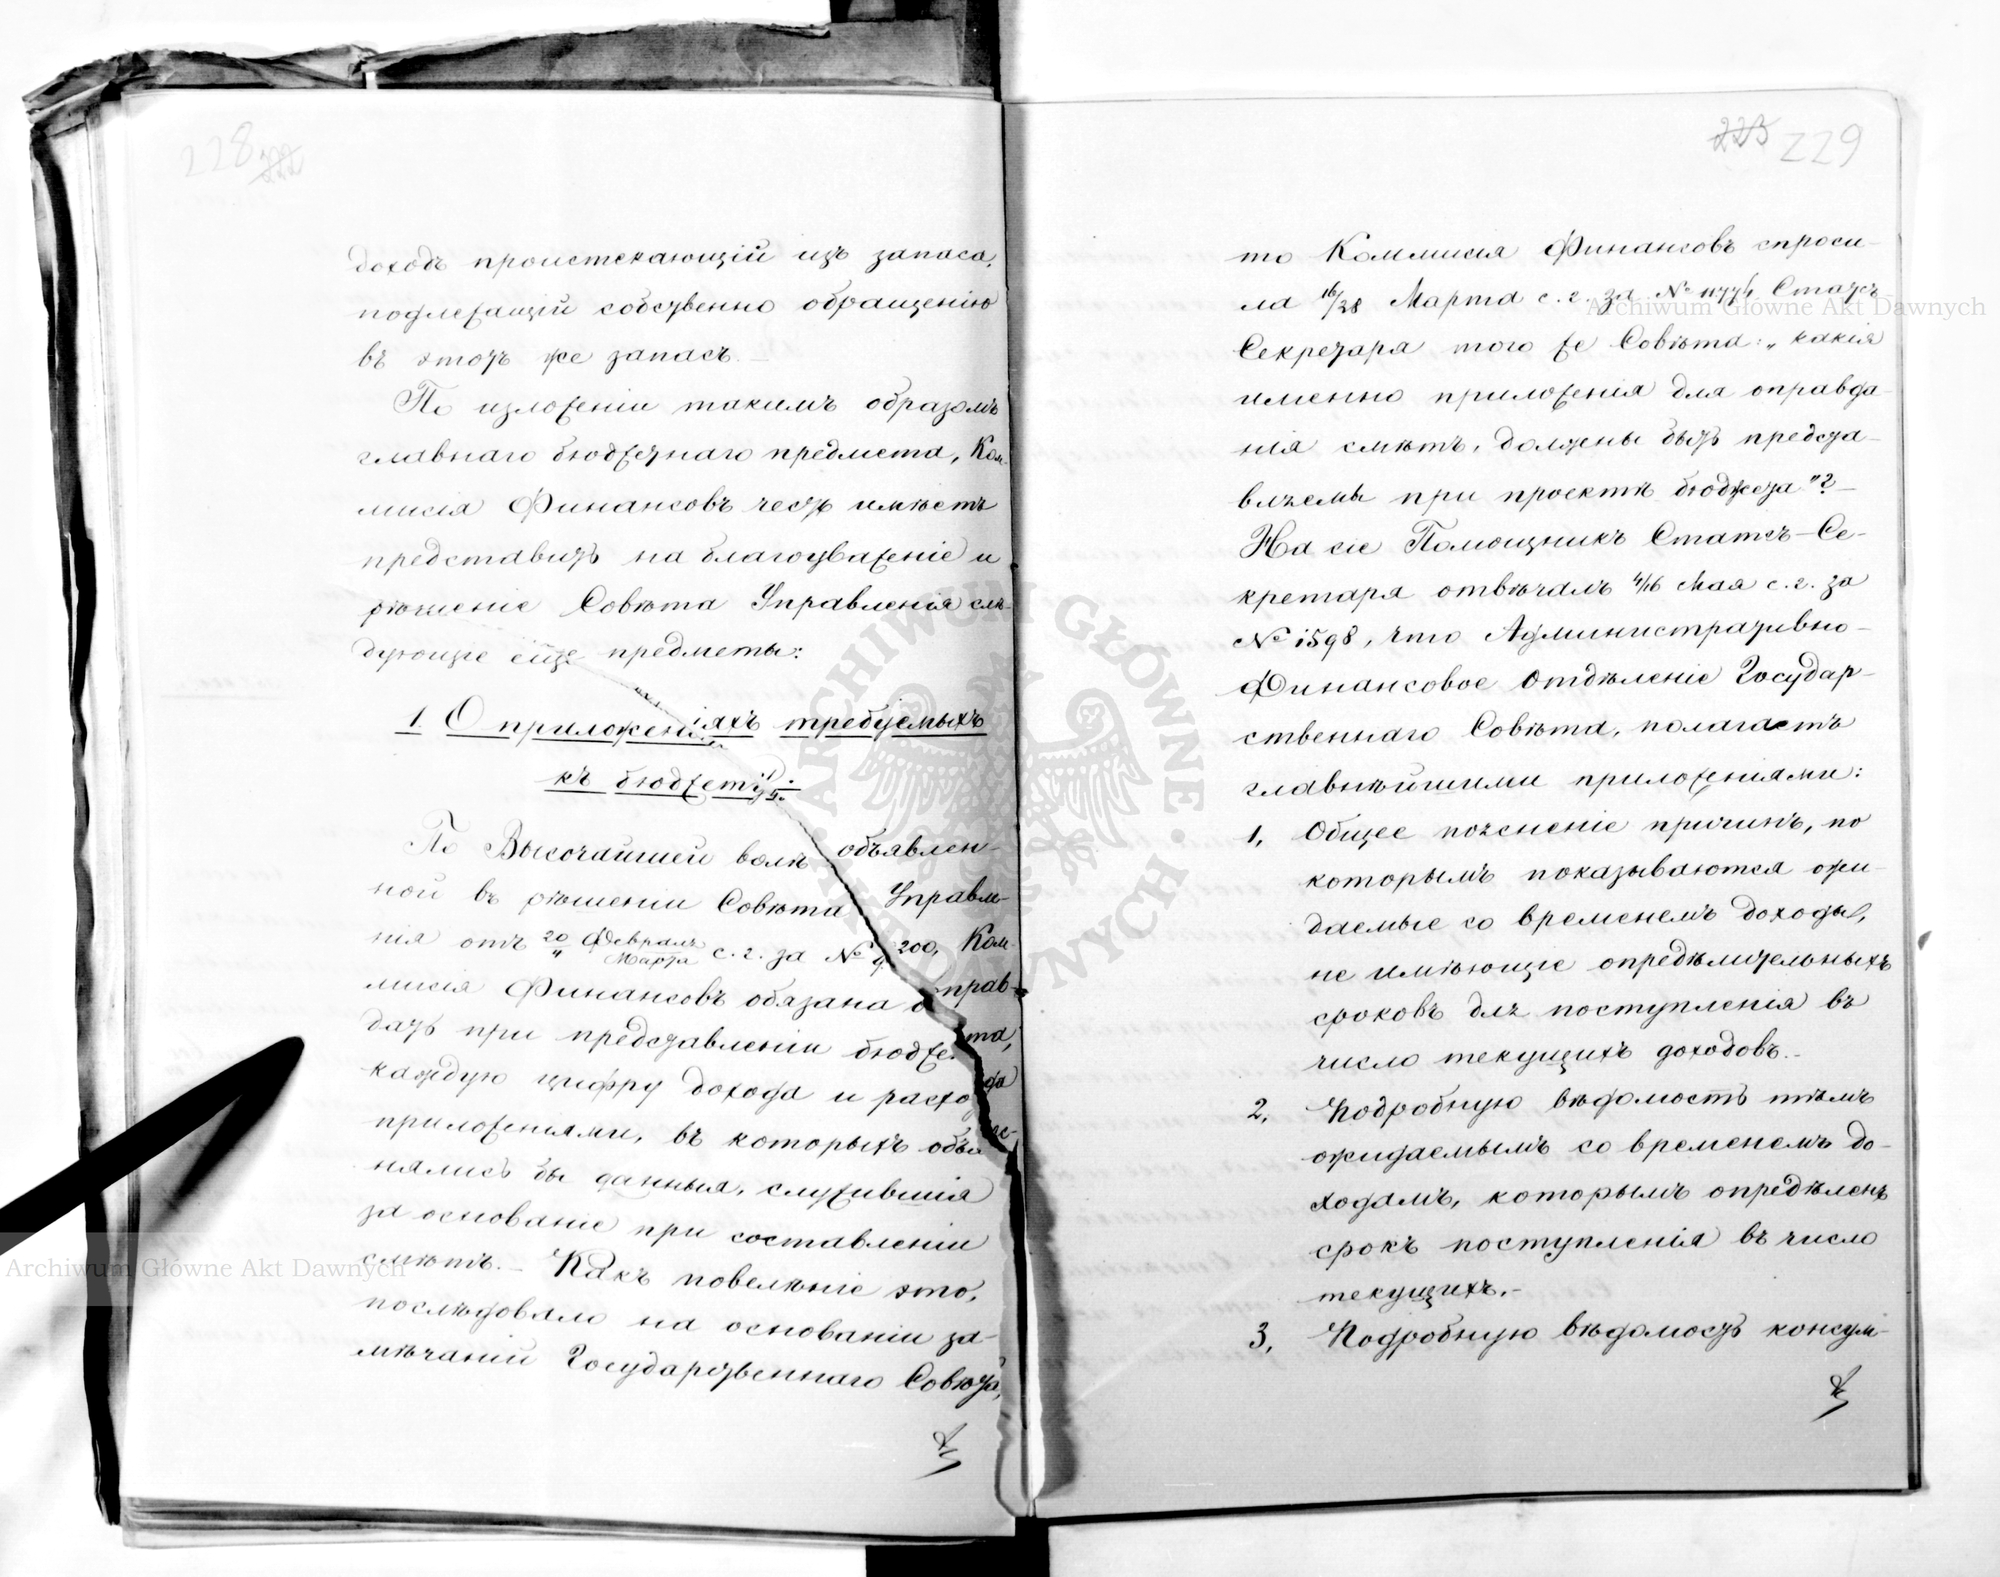 228 222
доходъ проистекающій изъ запаса,
подлежащій собственно обращенію
въ этотъ же запасъ.—
По изложеніи такимъ образомъ
главнаго бюджетнаго предмета, Ком-
мисія Финансовъ честь имѣетъ
представить на благоуваженіе и
рѣшеніе Совѣта Управленія слѣ-
дующіе еще предметы:
1. О приложеніяхъ требуемыхъ
къ бюджету.
По Высочайшей волѣ объявлен-
ной въ рѣшеніи Совѣта Управле-
нія отъ 20 Февраля/" Марта с. г. за № 200, Ком-
мисія Финансовъ обязана оправ-
дать при представленіи бюджета,
каждую цифру дохода и расхода
приложеніями, въ которыхъ объяс-
нялись бы данныя, служившія
за основаніе при составленіи
смѣтъ.— Какъ повелѣніе это,
послѣдовало на основаніи за-
мѣчаній Государственнаго Совѣта,
223 229
то Коммисія Финансовъ спроси-
ла 16/28 Марта с. г. за № Статсъ-
Секретаря того же Совѣта: „какія
именно приложенія для оправда-
нія смѣтъ, должны быть предста-
вляемы при проектѣ бюджета"?—
На сіе Помощникъ Статсъ-Се-
кретаря отвѣчалъ 4/16 Мая с. г. за
№ 1598, что Административно-
Финансовое Отдѣленіе Государ-
ственнаго Совѣта, полагаетъ
главнѣйшими приложеніями:
1, Общее поясненіе причинъ, по
которымъ показываются ожи-
даемые со временемъ доходы,
не имѣющіе опредѣлительныхъ
сроковъ для поступленія въ
число текущихъ доходовъ.—
2, Подробную вѣдомость тѣмъ
ожидаемымъ со временемъ до-
ходамъ, которымъ опредѣленъ
срокъ поступленія въ число
текущихъ.—
3, Подробную вѣдомость консум-
Archiwum Główne Akt Dawnych
Archiwum Główne Akt Dawnych
ARCHIWUM GŁÓWNE AKT DAWNYCH